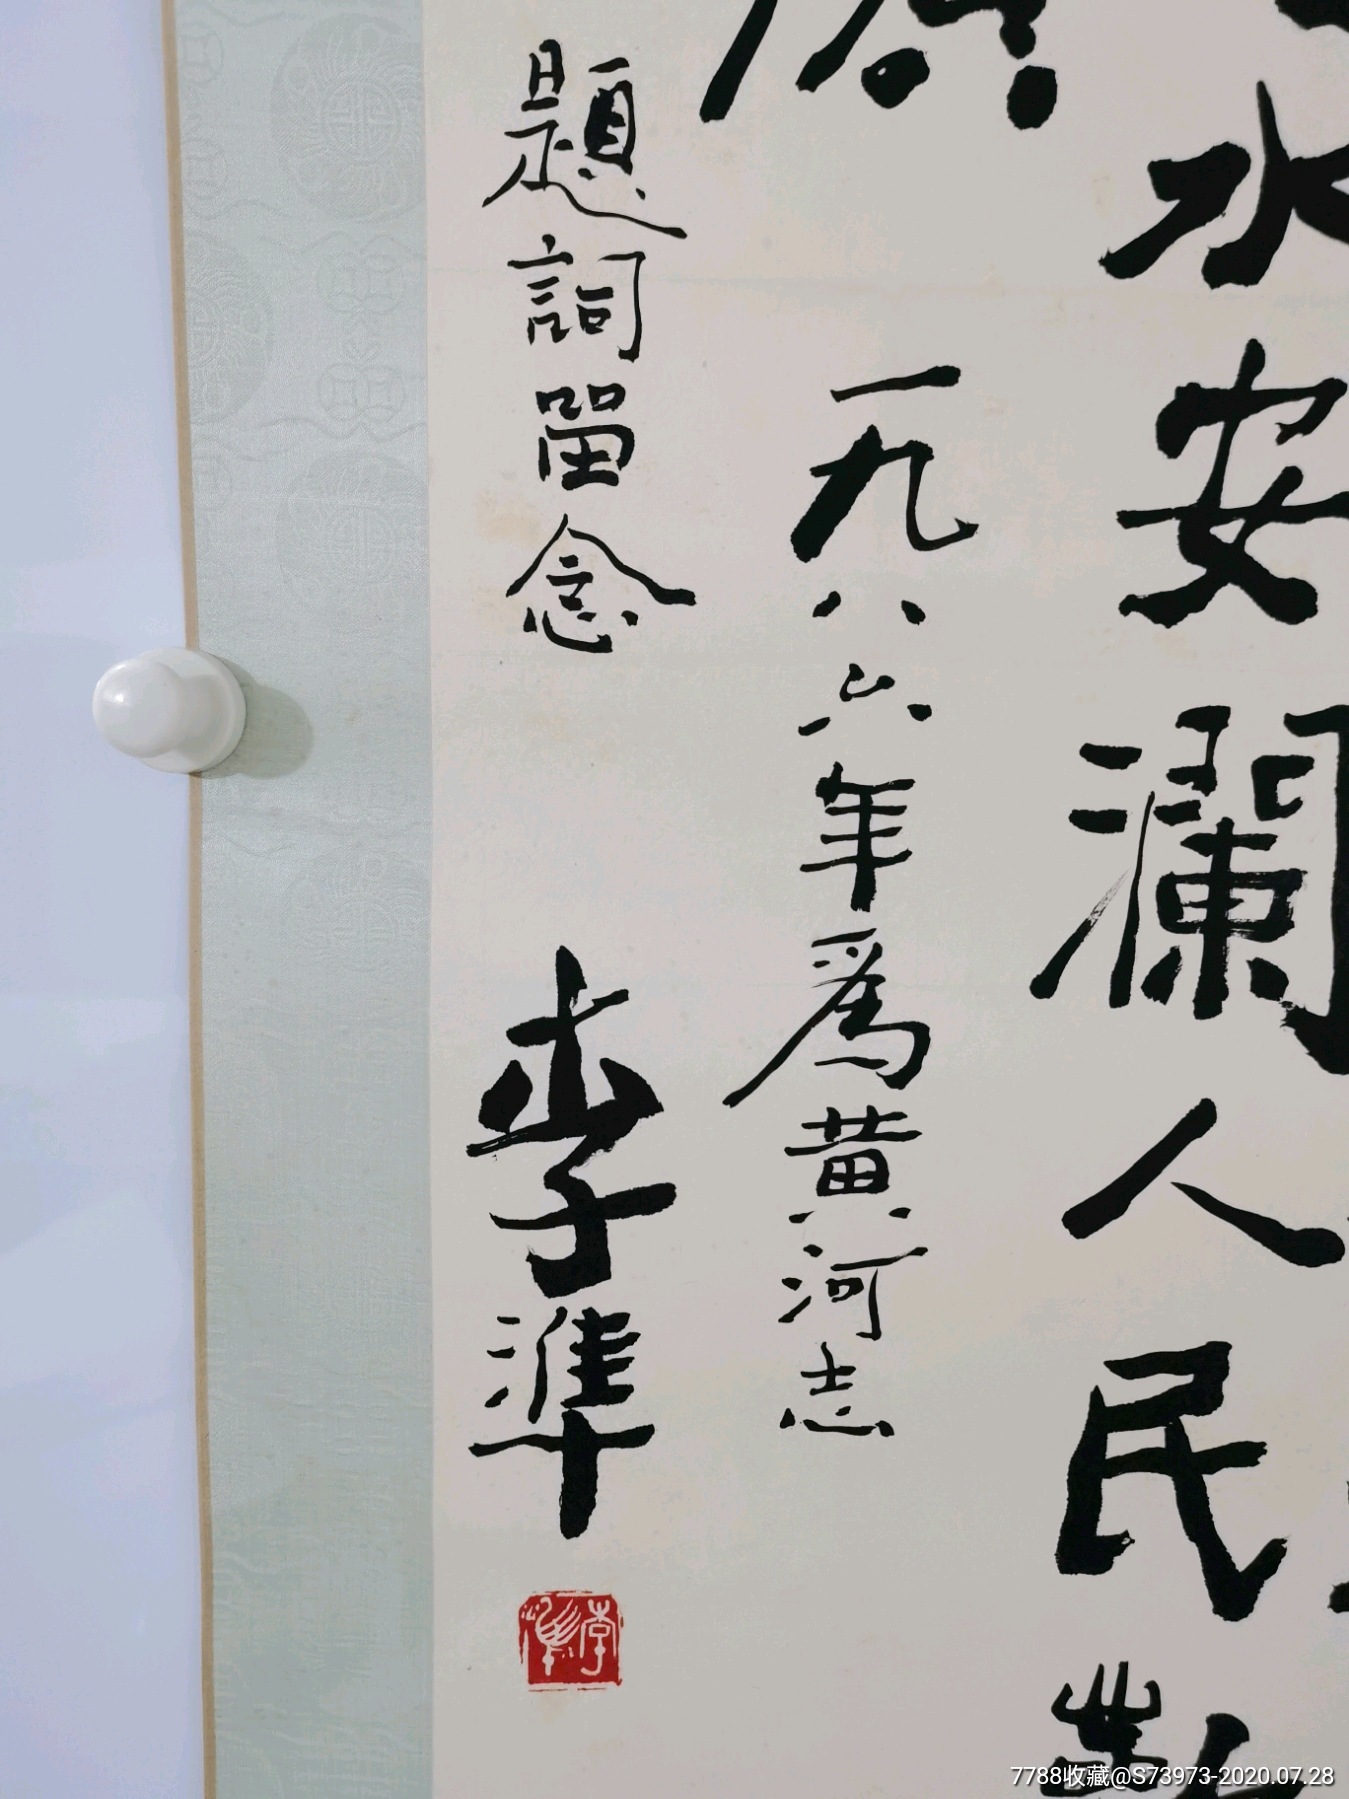 水安瀾人民
一九八六年爲黄河志
題詞留念
李準
李準
7788收藏@S73973-2020.07.28